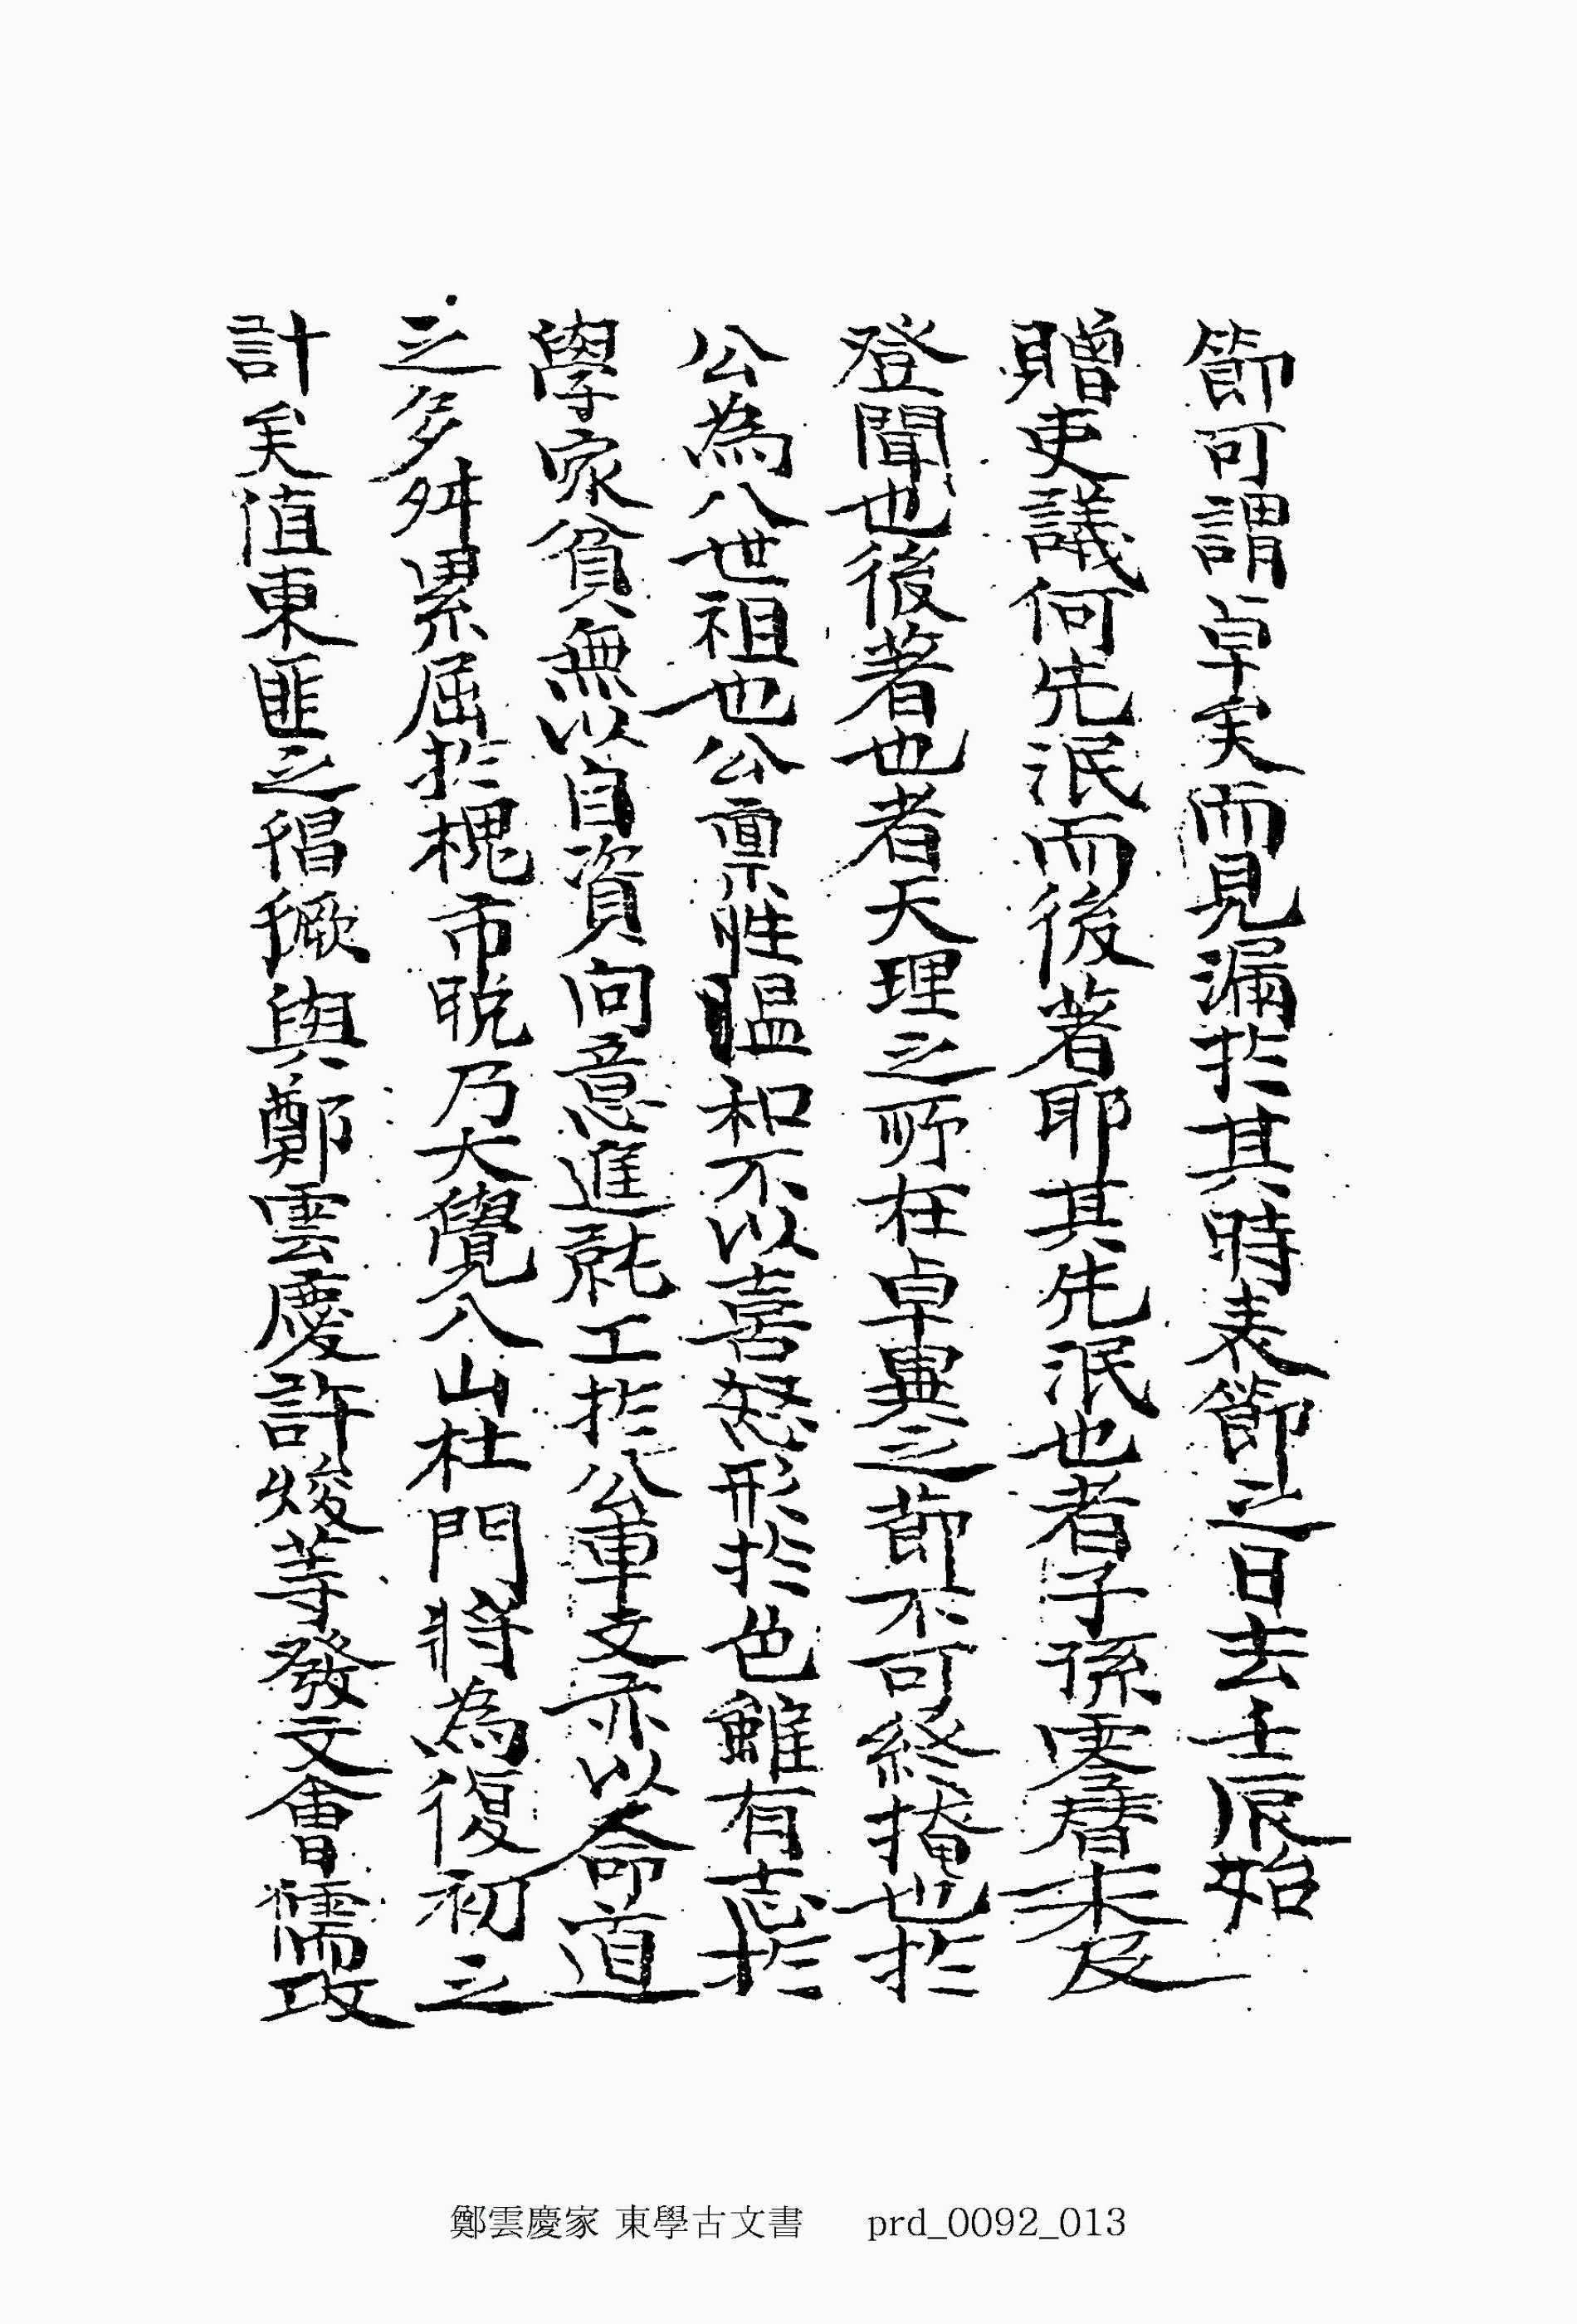 節可謂卓矣而見漏於其時表節之日去壬辰始
贈吏議何先泯而後著耶其先泯也者子孫零替未及
登聞也後著也者天理之所在卓異之節不可終掩也於
公為八世祖也公稟性溫和不以喜怒形於色雖有志於
學家貧無以自資向意進就工於公車文亦以命道
之多舛累屈於槐市晩乃大覺入山杜門將為復初之
計矣值東匪之猖獗與鄭雲慶許焌等發文會儒攻
鄭雲慶家 東學古文書 prd_0092_013